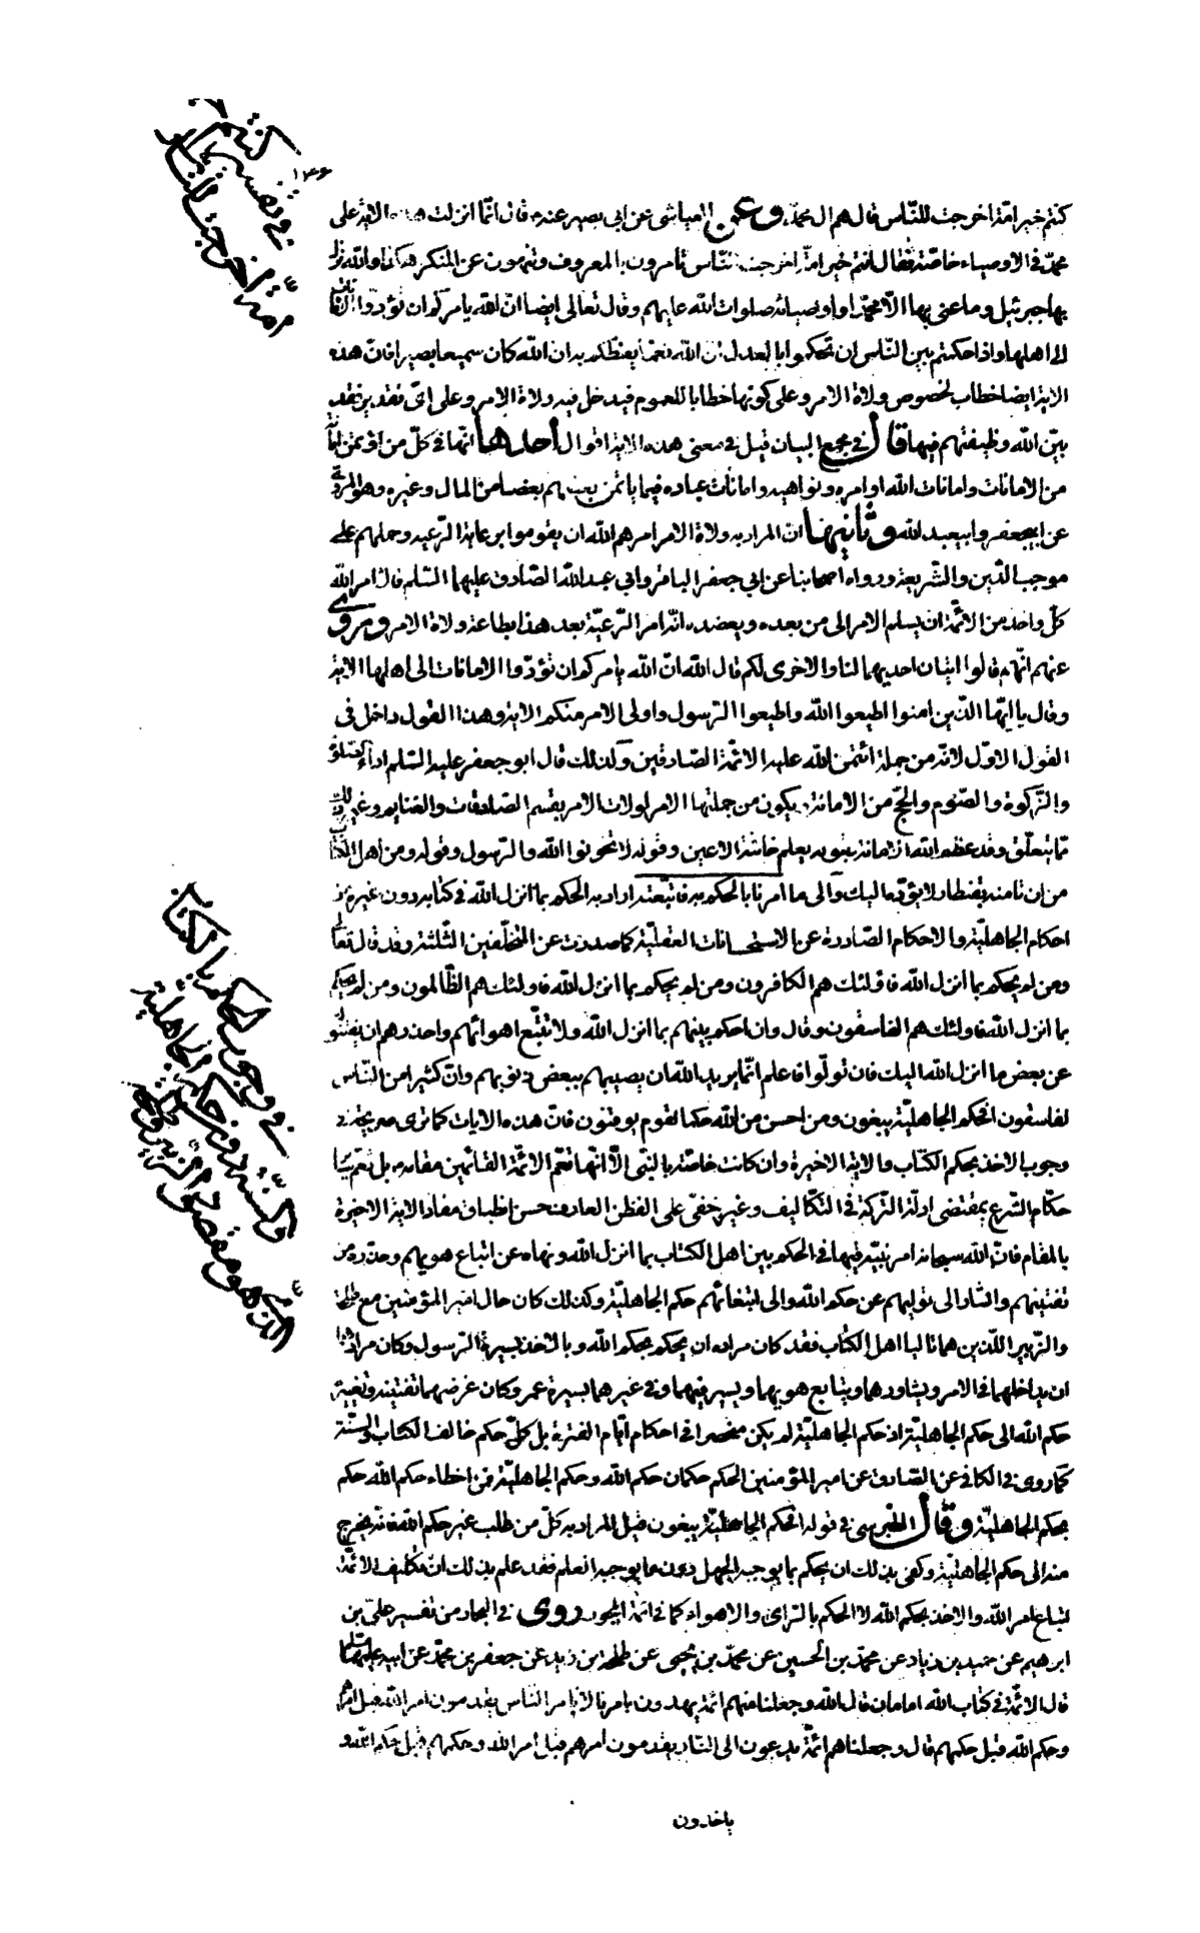 في تفسير كنتم خير
امّة اخرجت للناس
١٣٤
كنتم خير امّة اخرجت للنّاس قال هم ال محمّد وعن العياشى عن ابى بصير عنه قال انّما انزلت هذه الاية على
محمّد في الاوصياء خاصّة فقال انتم خير امّة اخرجت للنّاس تأمرون بالمعروف وتنهون عن المنكر هكذا والله نزل
بها جبرئيل وما عنى بها الّا محمّدا واوصيائه صلوات الله عليهم وقال تعالى ايضا انّ الله يامركم ان تؤدّوا الامانات
الى اهلها واذا حكمتم بين النّاس ان تحكموا بالعدل انّ الله نعمّا يعظكم به ان الله كان سميعا بصيرا فانّ هذه
الاية ايضا خطاب لخصوص ولاة الامر وعلى كونها خطابا للعموم فيدخل فيه ولاة الامر وعلى اىّ فقد
بيّن الله وظيفتهم فيها قال في مجمع البيان قيل في معنى هذه الاية اقوال احدها انّها في كلّ من اؤتمن
من الامانات وامانات الله اوامره ونواهيه وامانات عباده فيما ياتمن بعضهم بعضا من المال وغيره وهو المروىّ
عن ابيجعفر وابيعبد الله وثانيها انّ المراد به ولاة الامر امرهم الله ان يقوموا برعاية الرّعية وحملهم على
موجب الدّين والشّريعة ورواه اصحابنا عن ابي جعفر الباقر وابي عبد الله الصّادق عليهما السّلم قال امر الله
كلّ واحد من الائمّة ان يسلم الامر الى من بعده ويعضده انّه امر الرّعيّة بعد هذا بطاعة ولاة الامر وروى
عنهم انّهم قالوا ايتان احديهما لنا والاخرى لكم قال الله انّ الله يامركم ان تؤدّوا الامانات الى اهلها الاية
وقال يا ايّها الّذين امنوا اطيعوا الله واطيعوا الرّسول واولى الامر منكم الاية وهذا القول داخل في
القول الاوّل لانّه من جملة ائتمن الله عليه الائمّة الصّادقين وكذلك قال ابو جعفر عليه السّلم اداء الصّلوة
والزّكوة والصّوم والحجّ من الامانة ويكون من جملتها الامر لولات الامر بقسم الصّدقات والغنايم وغير ذلك
ممّا يتعلّق وقد عظم الله الامانة بقوله يعلم خائنة الاعين وقوله لا تخونوا الله والرّسول وقوله ومن اهل الكتاب
من ان تامنه بقنطار لا يؤدّه اليك والى ما امرنا بالحكم به فاتّبعته اراد به الحكم بما انزل الله في كتابه دون غيره من
احكام الجاهليّة والاحكام الصّادرة عن الاستحسانات العقليّة كما صدرت عن المتخلّفين الثّلثة وقد قال تعالى
ومن لم يحكم بما انزل الله فاولئك هم الكافرون ومن لم يحكم بما انزل الله فاولئك هم الظّالمون ومن لم يحكم
بما انزل الله فاولئك هم الفاسقون وقال وان احكم بينهم بما انزل الله ولا تتّبع اهوائهم واحذرهم ان يفتنوك
عن بعض ما انزل الله اليك فان تولّوا فاعلم انّما يريد الله ان يصيبهم ببعض ذنوبهم وانّ كثيرا من النّاس
لفاسقون افحكم الجاهليّة يبغون ومن احسن من الله حكما لقوم يوقنون فانّ هذه الايات كما ترى صريحة في
وجوب الاخذ بحكم الكتاب والاية الاخيرة وان كانت خاصّة بالنّبى الّا انّها تعمّ الائمّة القائمين مقامه بل تعمّ
حكّام الشّرع بمقتضى ادلّة الشّركة في التّكاليف وغير خفىّ على الفطن العارف حسن انطباق مفاد الاية الاخيرة
بالمقام فانّ الله سبحانه امر نبيّه فيها في الحكم بين اهل الكتاب بما انزل الله ونهاه عن اتباع هويهم وحذّره من
تفتينهم واشار الى توليهم عن حكم الله والى ابتغائهم حكم الجاهليّة وكذلك كان حال امير المؤمنين مع طلحة
والزّبير اللّذين هما تاليا اهل الكتاب فقد كان مراده ان يحكم بحكم الله وبالاخذ بسيرة الرّسول وكان مرادهما
ان يداخلهما في الامر ويشاورهما ويتابع هويهما ويسير فيهما وفي غيرهما بسيرة عمر وكان غرضهما تفتينه وتغيير
حكم الله الى حكم الجاهليّة اذ حكم الجاهليّة لم يكن منحصرا في احكام ايّام الفترة بل كلّ حكم خالف الكتاب والسّنّة
كما روى في الكافي عن الصّادق عن امير المؤمنين الحكم حكمان حكم الله وحكم الجاهليّة فمن اخطاء حكم الله حكم
بحكم الجاهليّة وقال الطّبرسى في قوله افحكم الجاهليّة يبغون قيل المراد به كلّ من طلب غير حكم الله فانه يخرج
منه الى حكم الجاهليّة وكفى بذلك ان يحكم بما يوجبه الجهل دون ما يوجبه العلم فقد علم بذلك انّ تكليف الائمّة
اتباع امر الله والاخذ بحكم الله لا الحكم بالرّاى والاهواء كما في ائمّة الجور روى في البحار من تفسير علىّ بن
ابرهيم عن حميد بن زياد عن محمّد بن الحسين عن محمّد بن يحيى عن طلحة بن زيد عن جعفر بن محمّد عن ابيه عليهما السلم
قال الائمّة في كتاب الله امامان قال الله وجعلنا منهم ائمّة يهدون بامرنا لا بامر النّاس يقدمون امر الله قبل امرهم
وحكم الله قبل حكمهم قال وجعلناهم ائمّة يدعون الى النّار يقدمون امرهم قبل امر الله وحكمهم قبل حكم الله و
في وجوب الحكم بالكتاب
والسّنّة دون حكم الجاهلية
الّذى هو مقصود الزبير وطلحة
ياخذون